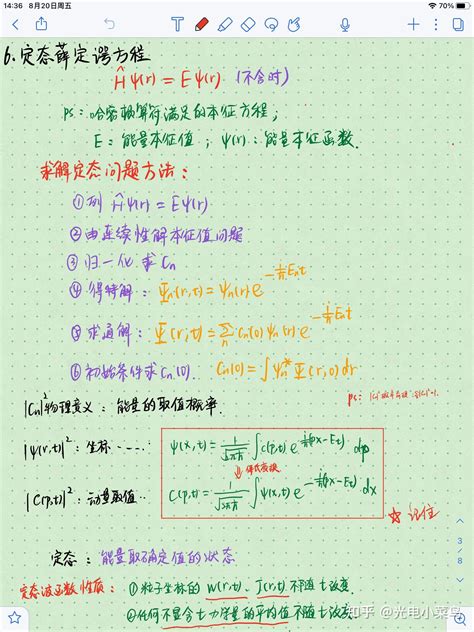 14:36 8月20日周五
70%
6.定态薛定谔方程
Ĥψ(r)=Eψ(r) (不含时)
ps:哈密顿算符满足的本征方程;
E:能量本征值;ψ(r):能量本征函数.
求解定态问题方法:
①列 Ĥψ(r)=Eψ(r)
②由连续性解本征值问题
③归一化求Cn
④得特解:Ψn(r,t)=ψn(r)e^{-i/ħ Ent}
⑤求通解:Ψ(r,t)=∑n Cn(0)ψn(r)e^{-i/ħ Ent}
⑥初始条件求Cn(0). Cn(0)=∫ψn*Ψ(r,0)dr
|Cn|²物理意义:能量的取值概率.
ps:
|ψ(r,t)|²:坐标-----
ψ(x,t)=1/√2πħ ∫C(p,t)e^{i/ħ(px-Et)}dp
|C(p,t)|²:动量取值..
C(p,t)=1/√2πħ ∫ψ(x,t)e^{-i/ħ(px-Et)}dx
☆记住
3/8
定态:能量取确定值的状态
定态波函数性质:①粒子坐标的W(r,t)、J(r,t)不随t改变.
②任何不显含t力学量的平均值不随t改变.
知乎 @光电小菜鸟